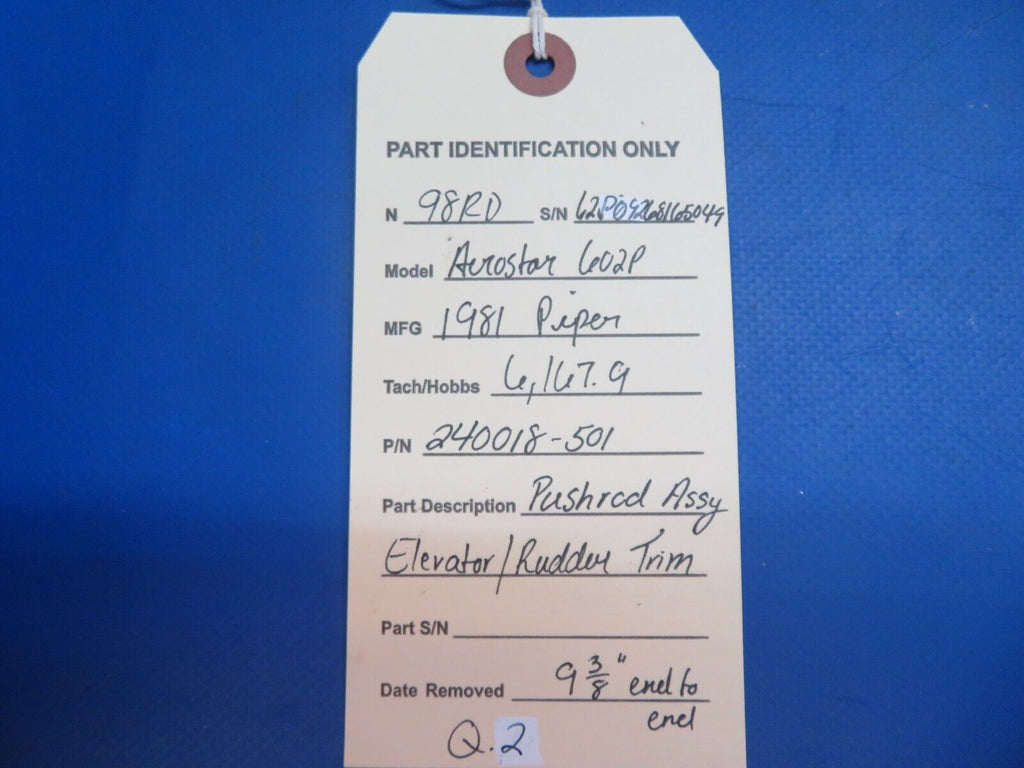 PART IDENTIFICATION ONLY
N 98RD S/N
Model Aerostar 602P
MFG 1981 Piper
Tach/Hobbs 6,167.9
P/N 240018-501
Part Description Pushrod Assy
Elevator/Rudder Trim
Part S/N
Date Removed 9 3/8" end to
end
Q.2